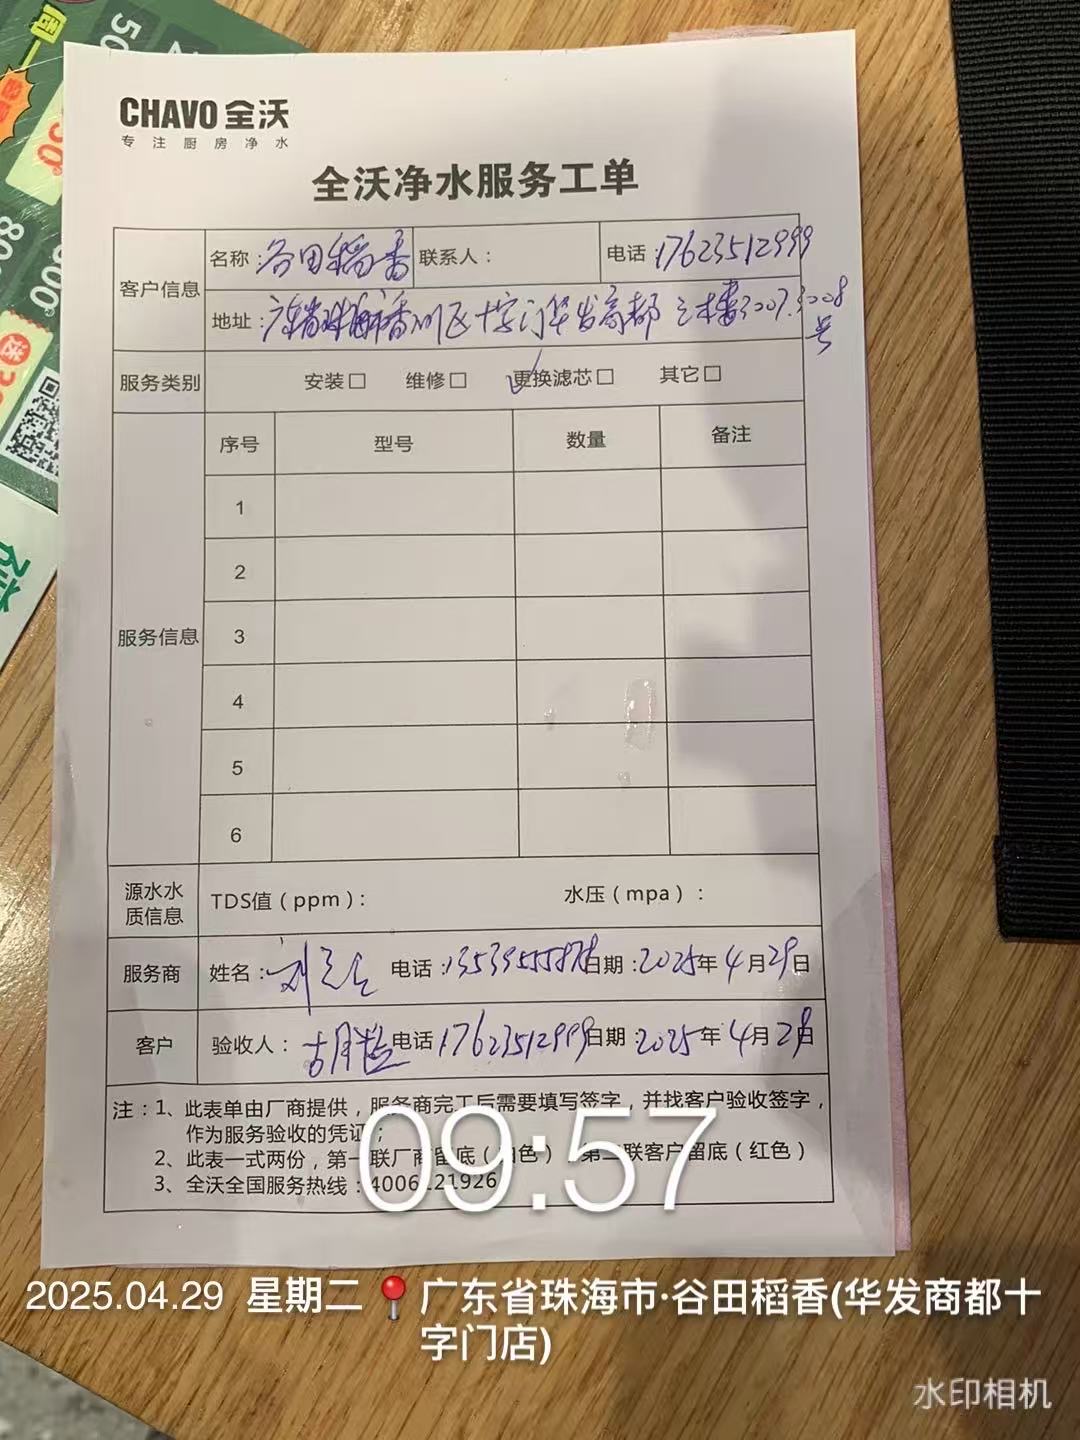 CHAVO 全沃
专注厨房净水
全沃净水服务工单
客户信息 名称：谷田稻香 联系人： 电话：17623512999
地址：广东省珠海香川区十字门华发商都三楼3007.3008号
服务类别 安装□ 维修□ 更换滤芯□ 其它□
服务信息
序号 型号 数量 备注
1
2
3
4
5
6
源水水质信息 TDS值（ppm）： 水压（mpa）：
服务商 姓名：刘 电话：日期：2025年4月29日
客户 验收人：胡 电话 17623512999 日期：2025年4月29日
注：1、此表单由厂商提供，服务商完工后需要填写签字，并找客户验收签字，
作为服务验收的凭证；
2、此表一式两份，第一联厂商留底（白色） 第二联客户留底（红色）
3、全沃全国服务热线：4006121926
09:57
2025.04.29 星期二 广东省珠海市·谷田稻香(华发商都十
字门店)
水印相机